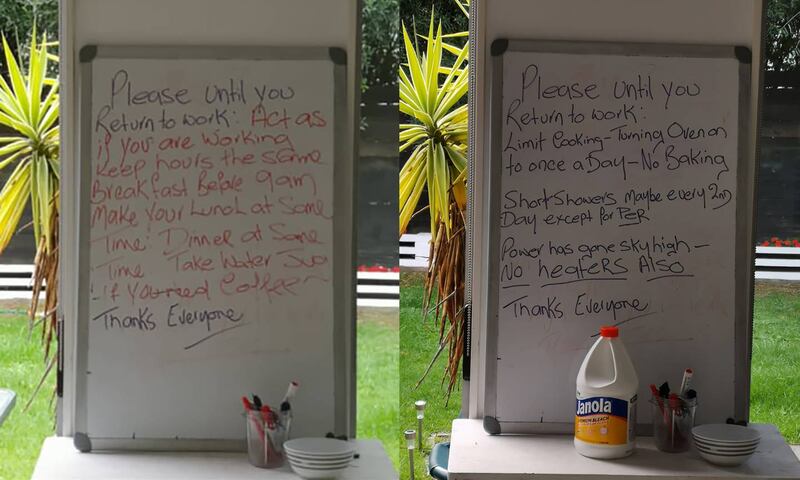 Please until you
Return to work: Act as
if you are working
Keep hours the same
Breakfast Before 9am
Make your Lunch at Same
Time: Dinner at Same
Time Take Water Jug
if you need Coffee~
Thanks Everyone
Please until you
Return to work:
Limit Cooking-Turning Oven on
to once a Day-No Baking
Short Showers Maybe every 2nd
Day except for PER
Power has gone sky high-
No heaters Also
Thanks Everyone
Janola
LEMON BLEACH